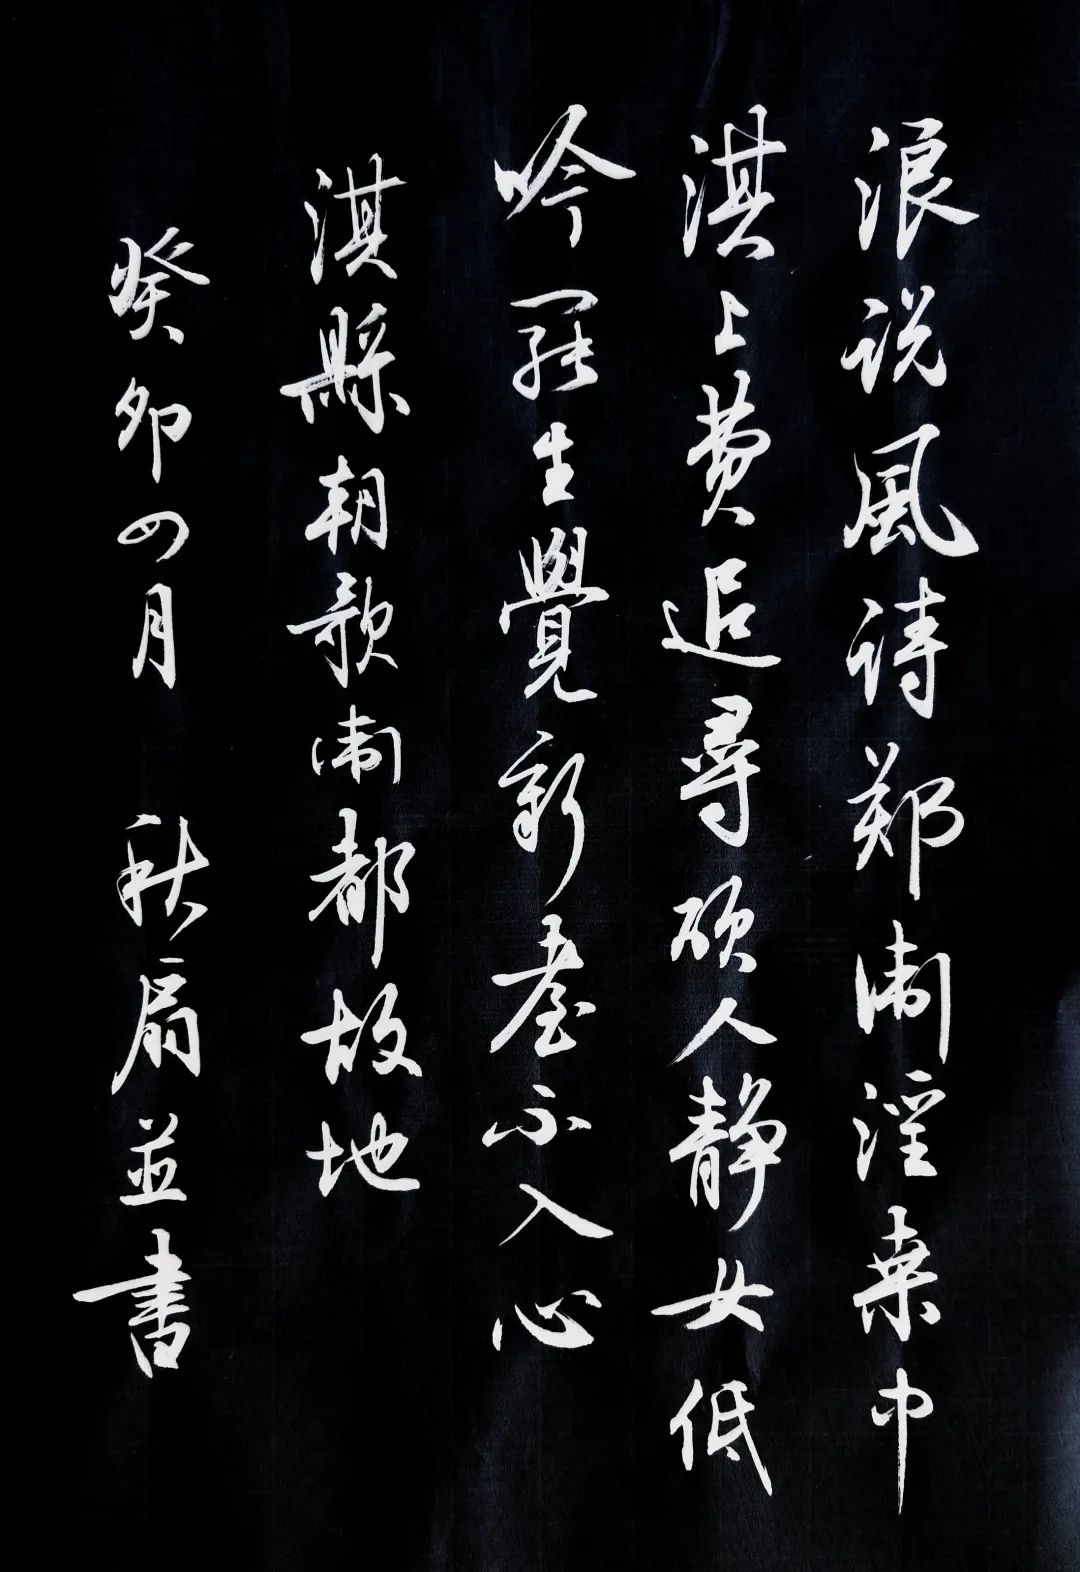 浪说風诗郑衛淫桑中
淇上费追尋硕人静女低
吟羅生覺新臺不入心
淇縣朝歌衛都故地
癸卯四月 秋扇並書